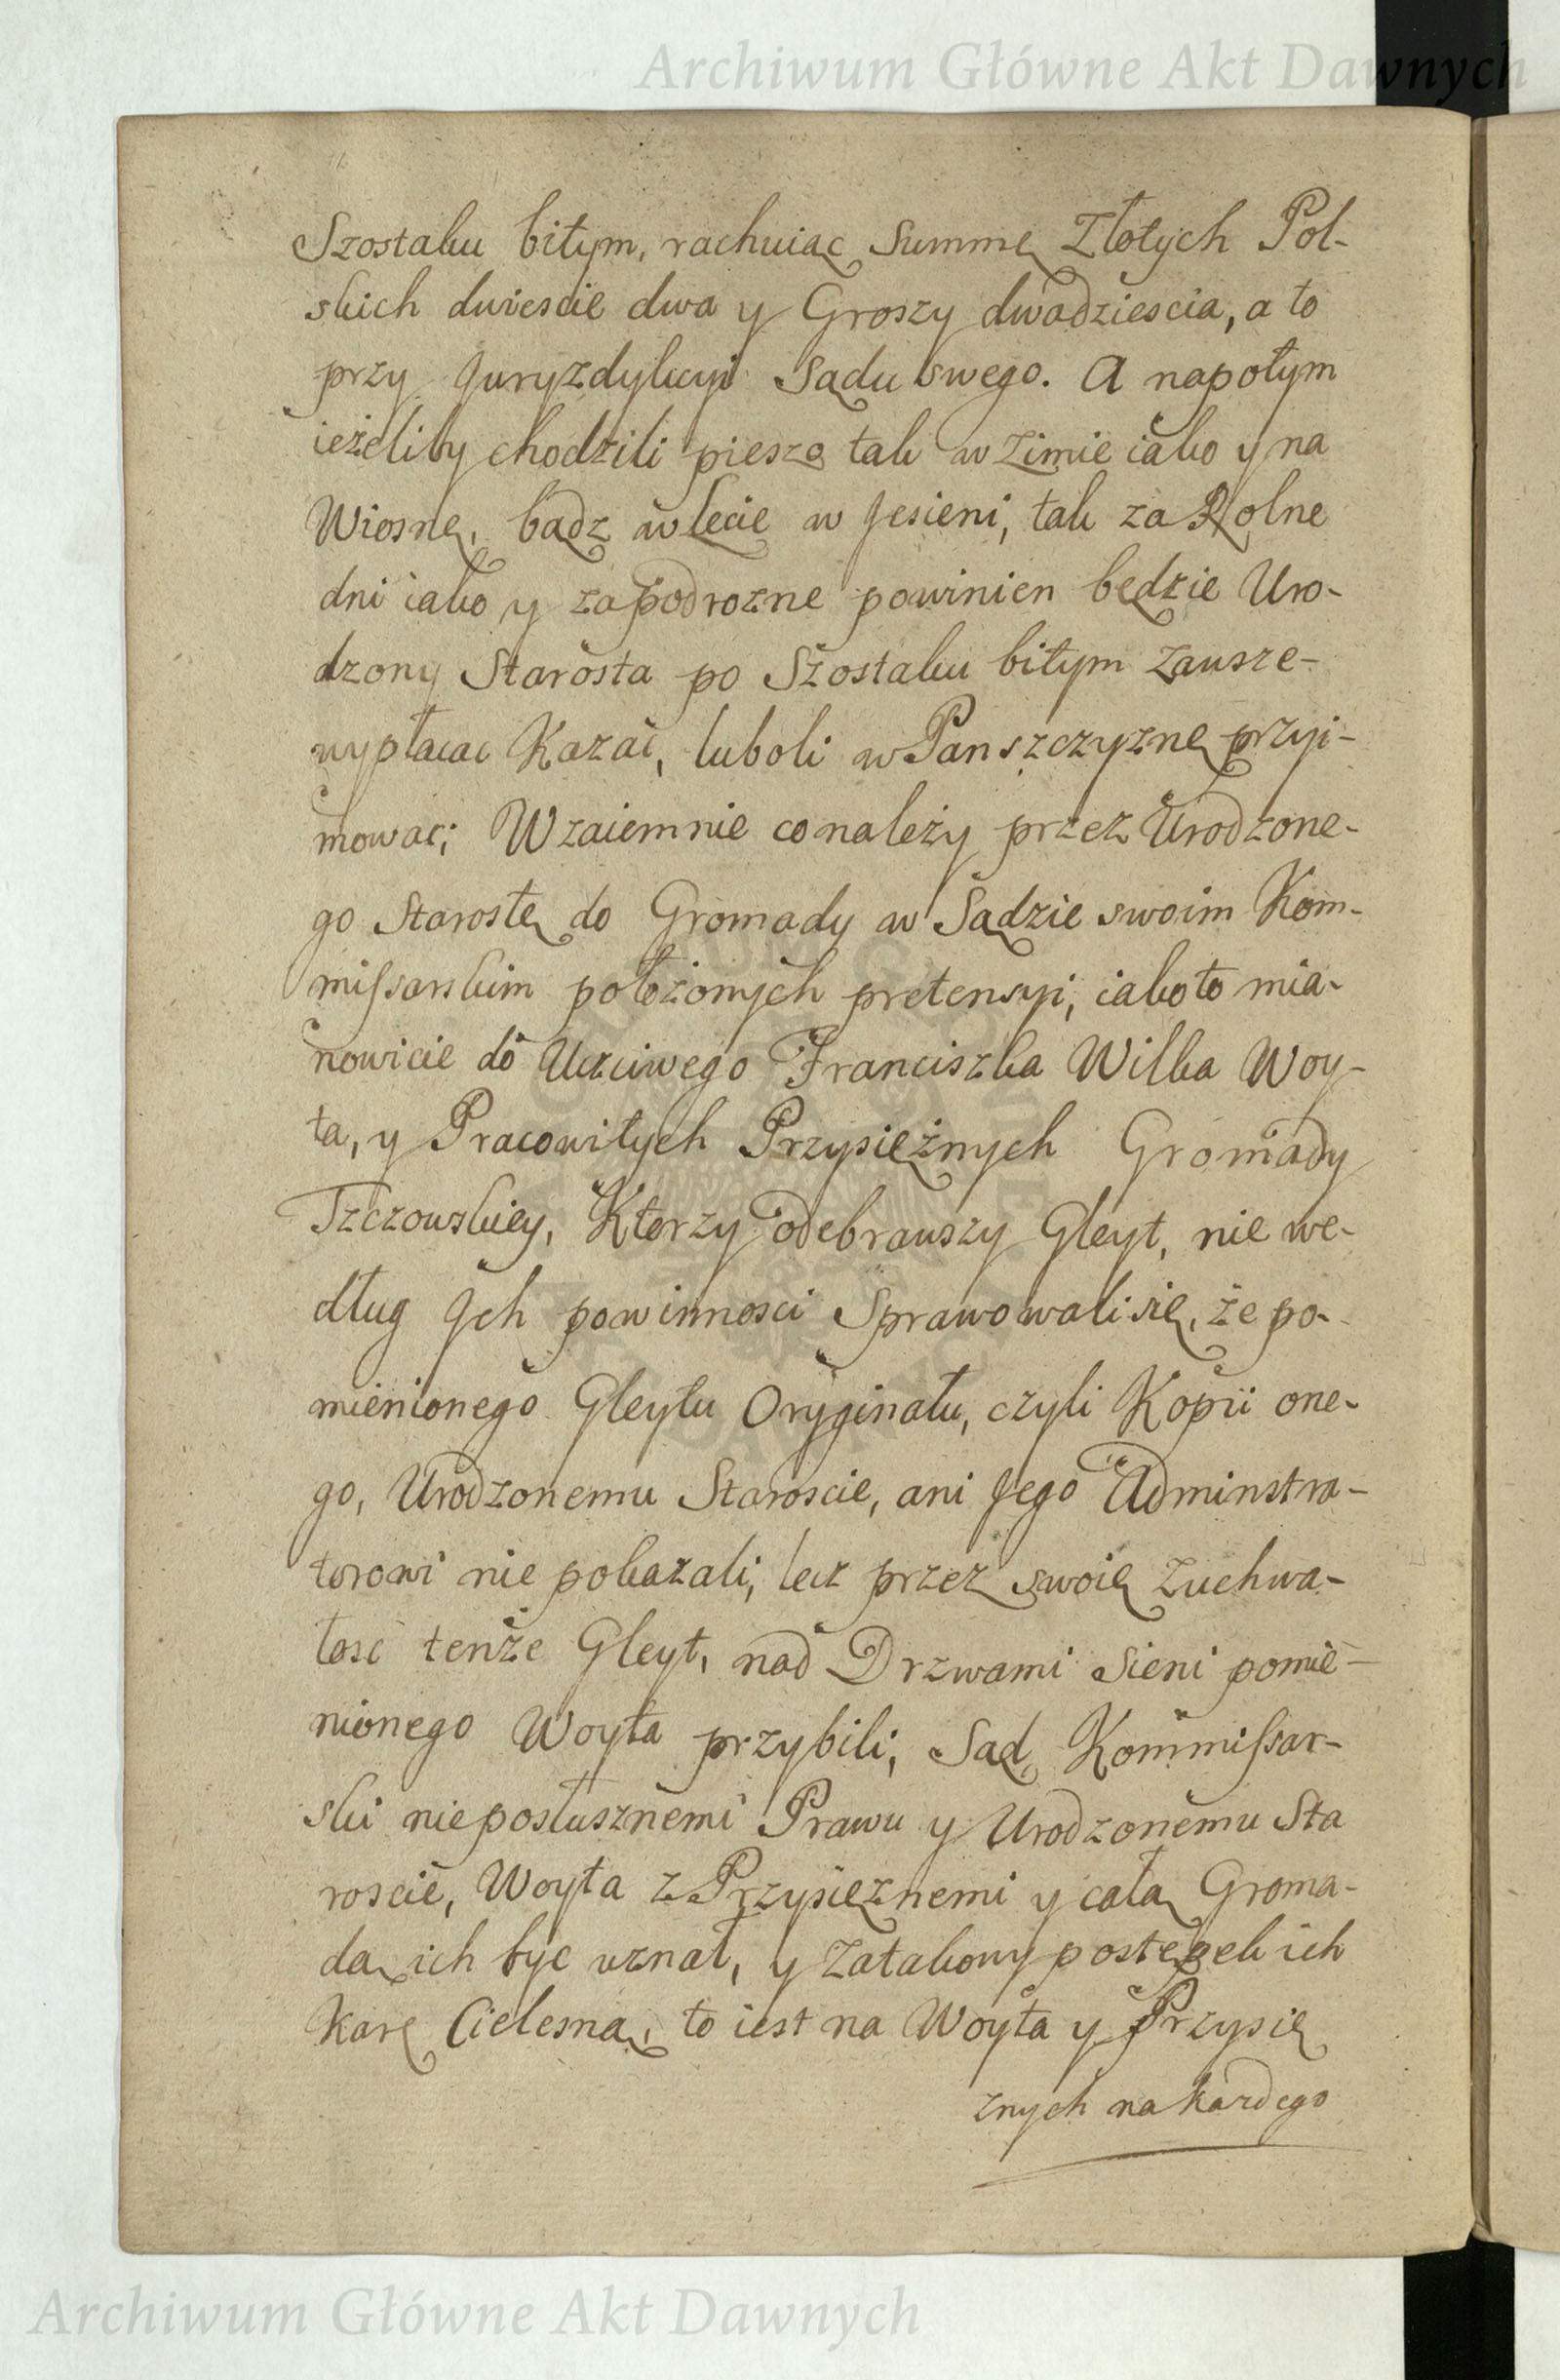 Archiwum Główne Akt Dawnych
Szostaku bitym, rachuiąc Summę Złotych Pol-
skich dwiescie dwa y Groszy dwadziescia, a to
przy Juryzdykcyi Sądu swego. A napotym
ieżeliby chodzili pieszo tak w Zimie iako y na
Wiosnę, bądz w Lecie w Jesieni, tak za Rolne
dni iako y za podrozne powinien będzie Uro-
dzony Starosta po Szostaku bitym zawsze-
wypłacac Kazać, luboli w Panszczyznę przyi-
mowac; Wzaiemnie co należy przez Urodzone-
go Starostę do Gromady w Sądzie swoim Kom-
missarskim położonych pretensyi, iako to mia-
nowicie do Uczciwego Franciszka Wilka Woy-
ta, y Pracowitych Przysiężnych Gromady
Tzczowskiey, Ktorzy odebrawszy Gleyt, nie we-
dług Jch powinnosci Sprawowali się, że po-
mienionego Gleytu Oryginału, czyli Kopii one-
go, Urodzonemu Staroscie, ani Jego Adminstra-
torowi nie pokazali, lecz przez swoię zuchwa-
łosc tenże Gleyt, nad Drzwami Sieni pomie-
nionego Woyta przybili, Sąd Kommissar-
ski nieposłusznemi Prawu y Urodzonemu Sta
roscie, Woyta z Przysięznemi y całą Groma-
dą ich byc uznał, y za takowy postępek ich
karę Cielesną, to iest na Woyta y Przysię
znych na kazdego
Archiwum Główne Akt Dawnych